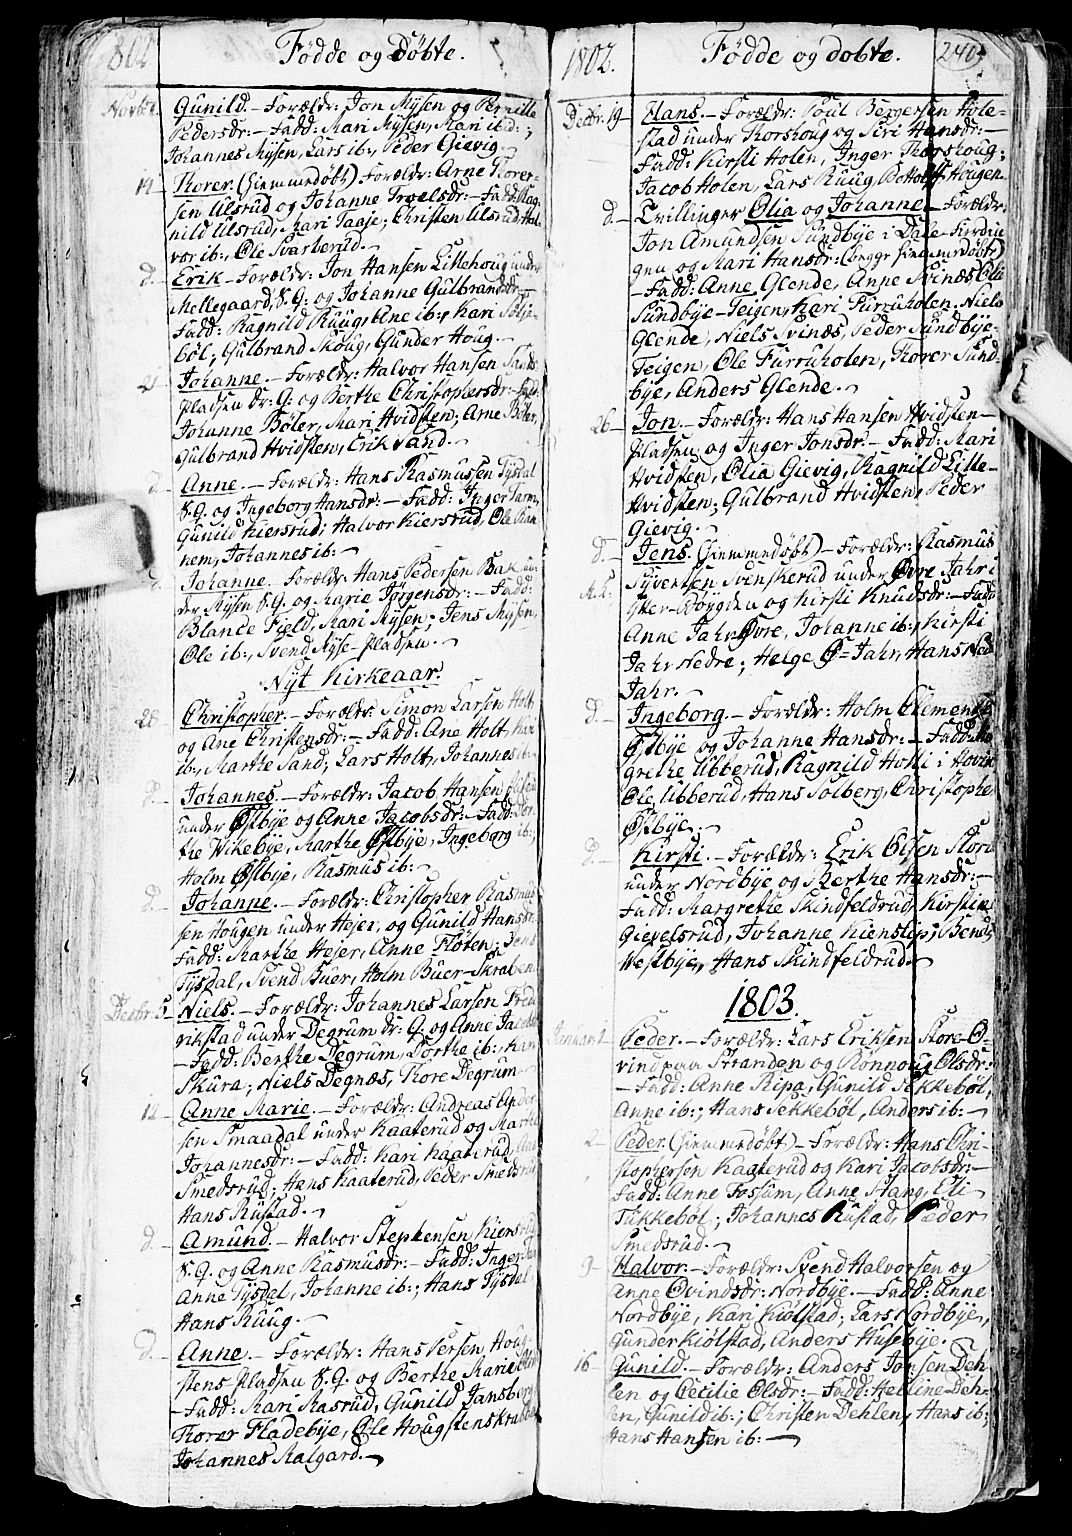 1802 Fødde og døbte.
Novbr. Gunild. – Forældr: Jon Mysen og Pernille
Pedersdr: – Fadd: Mari Mysen, Mari ibid:;
Johannes Mysen, Lars ib:, Peder Gievig.
14 – Thorer. (hiemmedøbt) Forældr: Arne Thorer-
sen Ulsrud og Johanne Troelsdr: – Fadd: Rag-
nild Ulsrud, Mari Taaje; Christen Ulsrud Hal-
vor ib:, Ole Svarberud.
d. – Erik – Forældr: Jon Hansen Lillehoug under
Mellegaard, S. G: og Johanne Gulbrandsdr: –
Fadd: Ragnild Ruug, Ane ib:, Kari Sølje-
bøl; Gulbrand Skoug, Gunder Houg. –
21 Johanne. – Forældr: Halvor Hansen Sands
Pladsen dr: G: og Berthe Christophersdr: – Fadd:
Johanne Bøler, Mari Hvidsten; Arne Bøler,
Gulbrand Hvidsten, Erik Sand. –
d. Anne. – Forældr: Hans Rasmussen Tysdal
S. G. og Ingeborg Hansdr: – Fadd: Inger
Gunild Kiersrud; Halvor Kiersrud, Ole Ram-
nem, Johannes ib: –
d. Johanne. Forældr: Hans Pedersen Bak un-
der Mysen S. G. og Marie Jørgensdr: – Fadd:
Blance Field, Mari Mysen; Jens Mysen,
Ole ib:, Svend Myse-Pladsen. –
Nyt Kirkeaar.
28 Christopher. – Forældr: Simon Larsen Holt
og Ane Christensdr: – Fadd: Ane Holt, Kari
ib:, Marthe Sand; Lars Holt, Johannes ib: –
d. – Johannes. – Forældr: Jacob Hansen
under Østbye og Anne Jacobsdr: – Fadd: Dor-
the Wikebye, Marthe Østbye, Ingeborg ib:,
Holm Østbye, Rasmus ib: –
d. – Johanne. – Forældr: Christopher Rasmus-
sen Hougen under Hejer, og Gunild Hansdr:
Fadd: Marthe Hejer, Anne Fløten; Jens
Tysdal, Svend Buer, Holm Buer-Skraben
Decbr: 5 Niels. – Forældr: Johannes Larsen Fred-
rikstad under Degrum dr: G: og Anne Jacobsdr:
– Fadd: Berthe Degrum, Dorthe ib:, Kari
Skura; Niels Degnæs, Thore Degrum –
12 – Anne Marie. – Forældr: Andreas Ander-
sen Smaadal under Kaaterud og Marthe
Johannesdr: – Fadd: Kari Kaaterud,
Smedsrud; Hans Kaaterud, Peder Smedsrud
Hans Rustad. –
d – Amund. – Halvor Stephensen Kiersrud
S. G. og Anne Rasmusdr: – Fadd: Inger
Anne Tysdal, Johanne ib:; Hans Tysdal,
Hans Ruug. –
d. – Anne. – Forældr: Hans Persen Houg-
stens Pladsen S. G. og Berthe Marie
– Fadd: Mari Rasrud, Gunild Jansborg
Thorer Fladebye, Ole Hougstenskrabben
Johannes Aalgard. –
1802. Fødde og døbte. 240.
Decbr. 19 – Hans. – Forældr: Poul Børgersen Hole-
stad under Thorshoug og Siri Hansdr: –
Fadd: Kirsti Holen, Inger Thorshoug;
Jacob Holen, Lars Ruug, Botholff Hougen.
d. – Tvillinger Olia og Johanne – Forældr:
Jon Amundsen Sundbye i Dale-Fierdin-
gen og Mari Hansdr: (begge hiemmedøbt)
– Fadd: Anne Glende, Anne Svinæs, Oli
Sundbye-Teigen, Kari Furruholen. Niels
Glende, Niels Svinæs, Peder Sundbye-
Teigen, Ole Furruholen, Thorer Sund-
bye, Anders Glende. –
26 – Jon. – Forældr: Hans Hansen Hvidsten-
Pladsen og Inger Jonsdr. – Fadd: Mari
Hvidsten, Olia Gievig, Ragnild Lille-
Hvidsten; Gulbrand Hvidsten, Peder
Gievig. –
d. – Jens. (hiemmedøbt) – Forældr: Rasmus
Syversen Svenskerud under Øvre Jahr i
Øster-Bøygden og Kirsti Knudsdr: – Fadd
Anne Jahr Øvre, Johanne ib:, Kirsti
Jahr Nedre; Helge Ø= Jahr, Hans Ned:
Jahr. –
d. – Ingeborg. – Forældr: Holm Clementsen
Østbye og Johanne Hansdr: – Fadd: Mar-
grethe Ubberud, Ragnild Holli i Hovin
Ole Ubberud, Hans Solberg, Christopher
Østbye. –
d. – Kirsti. – Forældr: Erik Olsen Storu
under Nordbye og Berthe Hansdr: –
Fadd: Margrethe Skindfeldrud, Kirstine
Gievelsrud, Johanne Kienslye; Bendt
Westbye, Hans Skindfeldrud. –
1803.
Januari 1 Peder. – Forældr: Lars Eriksen Store Ø-
vind paa Stranden og Rønnoug Olsdr:
– Fadd: Anne Ripa, Gunild Sekkebøl,
Anne ib:; Hans Sekkebøl, Anders ib: –
2 – Peder. (hiemmedøbt) – Forældr: Hans Chri-
stophersen Kaaterud og Kari Jacobsdr: –
Fadd: Anne Fossum, Anne Stang, Eli
Tikkebøl; Johannes Rustad, Peder
Smedsrud. –
9 – Halvor. – Forældr: Svend Halvorsen og
Anne Øvindsdr: Nordbye. – Fadd: Anne
Nordbye, Kari Kiølstad; Lars Nordbye,
Gunder Kiølstad, Anders Husebye. –
16 – Gunild. – Forældr: Anders Jonsen Deh-
len og Cecilie Olsdr: – Fadd: Helline Deh-
len, Gunild ib:; Christen Dehlen, Hans ib:
Hans Hansen ib: –